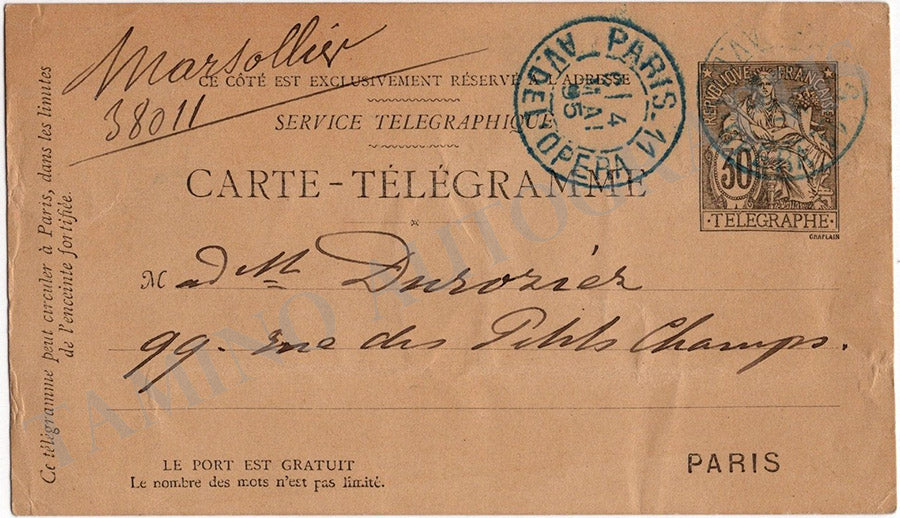 Marsollier
38011
CE CÔTÉ EST EXCLUSIVEMENT RÉSERVÉ A L'ADRESSE
SERVICE TELEGRAPHIQUE
CARTE-TÉLÉGRAMME
PARIS-11
4
MAI
85
AV. DE L'OPERA
REPUBLIQUE FRANÇAISE
30
TELEGRAPHE
CHAPLAIN
Madme Durozier
99. rue des Petits Champs.
LE PORT EST GRATUIT
Le nombre des mots n'est pas limité.
PARIS
Ce télégramme peut circuler à Paris, dans les limites
de l'enceinte fortifiée.
TAMINO AUTOGR